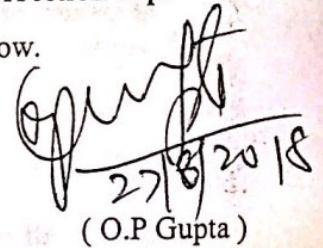 ow.
27/8/2018
( O.P Gupta )